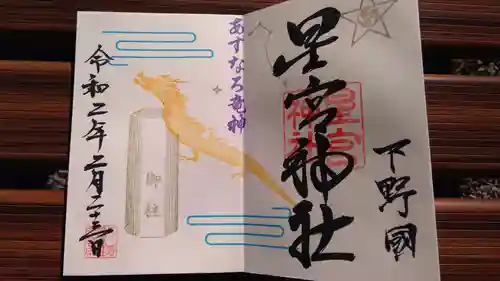 下野國
星宮神社
星宮
神社
あすなろ竜神
御柱
令和二年二月二十三日